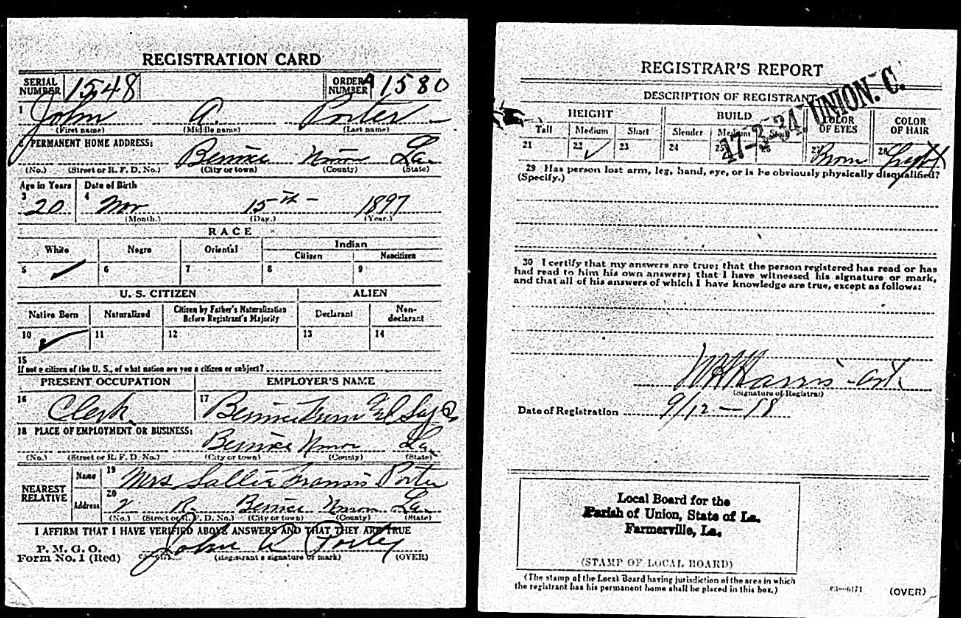 REGISTRATION CARD
SERIAL NUMBER 1548 ORDER NUMBER A1580
1 John A. Porter
(First name) (Middle name) (Last name)
2 PERMANENT HOME ADDRESS:
Bernice Union La
(No.) (Street or R. F. D. No.) (City or town) (County) (State)
Age in Years Date of Birth
3 20 4 Nov 15th 1897
(Month.) (Day.) (Year.)
RACE
White Negro Oriental Indian
Citizen Noncitizen
5 ✓ 6 7 8 9
U. S. CITIZEN ALIEN
Native Born Naturalized Citizen by Father's Naturalization Before Registrant's Majority Declarant Non-declarant
10 ✓ 11 12 13 14
15
If not a citizen of the U. S., of what nation are you a citizen or subject?
PRESENT OCCUPATION EMPLOYER'S NAME
16 Clerk 17 Bernice
18 PLACE OF EMPLOYMENT OR BUSINESS:
Bernice Union La
(No.) (Street or R. F. D. No.) (City or town) (County) (State)
NEAREST RELATIVE Name 19 Mrs Sallie Francis Porter
Address 20 R. Bernice Union La
(No.) (Street or R. F. D. No.) (City or town) (County) (State)
I AFFIRM THAT I HAVE VERIFIED ABOVE ANSWERS AND THAT THEY ARE TRUE
P. M. G. O.
Form No. 1 (Red) John A Porter
(Registrant's signature or mark) (OVER)
REGISTRAR'S REPORT
17-2-24. UNION. C.
DESCRIPTION OF REGISTRANT
HEIGHT BUILD COLOR OF EYES COLOR OF HAIR
Tall Medium Short Slender Medium Stout
21 22 ✓ 23 24 25 26 27 Brown 28 Light
29 Has person lost arm, leg, hand, eye, or is he obviously physically disqualified?
(Specify.)
30 I certify that my answers are true; that the person registered has read or has
had read to him his own answers; that I have witnessed his signature or mark,
and that all of his answers of which I have knowledge are true, except as follows:
Harris
(Signature of Registrar)
Date of Registration 9/12-18
Local Board for the
Parish of Union, State of La.
Farmerville, La.
(STAMP OF LOCAL BOARD)
(The stamp of the Local Board having jurisdiction of the area in which
the registrant has his permanent home shall be placed in this box.)
(OVER)